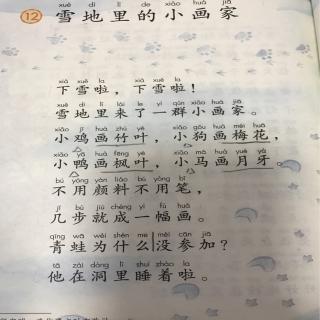 xuě dì lǐ de xiǎo huà jiā
12 雪地里的小画家
xià xuě la xià xuě la
下雪啦，下雪啦！
xuě dì lǐ lái le yì qún xiǎo huà jiā
雪地里来了一群小画家。
xiǎo jī huà zhú yè xiǎo gǒu huà méi huā
小鸡画竹叶，小狗画梅花，
xiǎo yā huà fēng yè xiǎo mǎ huà yuè yá
小鸭画枫叶，小马画月牙。
bú yòng yán liào bú yòng bǐ
不用颜料不用笔，
jǐ bù jiù chéng yì fú huà
几步就成一幅画。
qīng wā wèi shén me méi cān jiā
青蛙为什么没参加？
tā zài dòng lǐ shuì zháo la
他在洞里睡着啦。